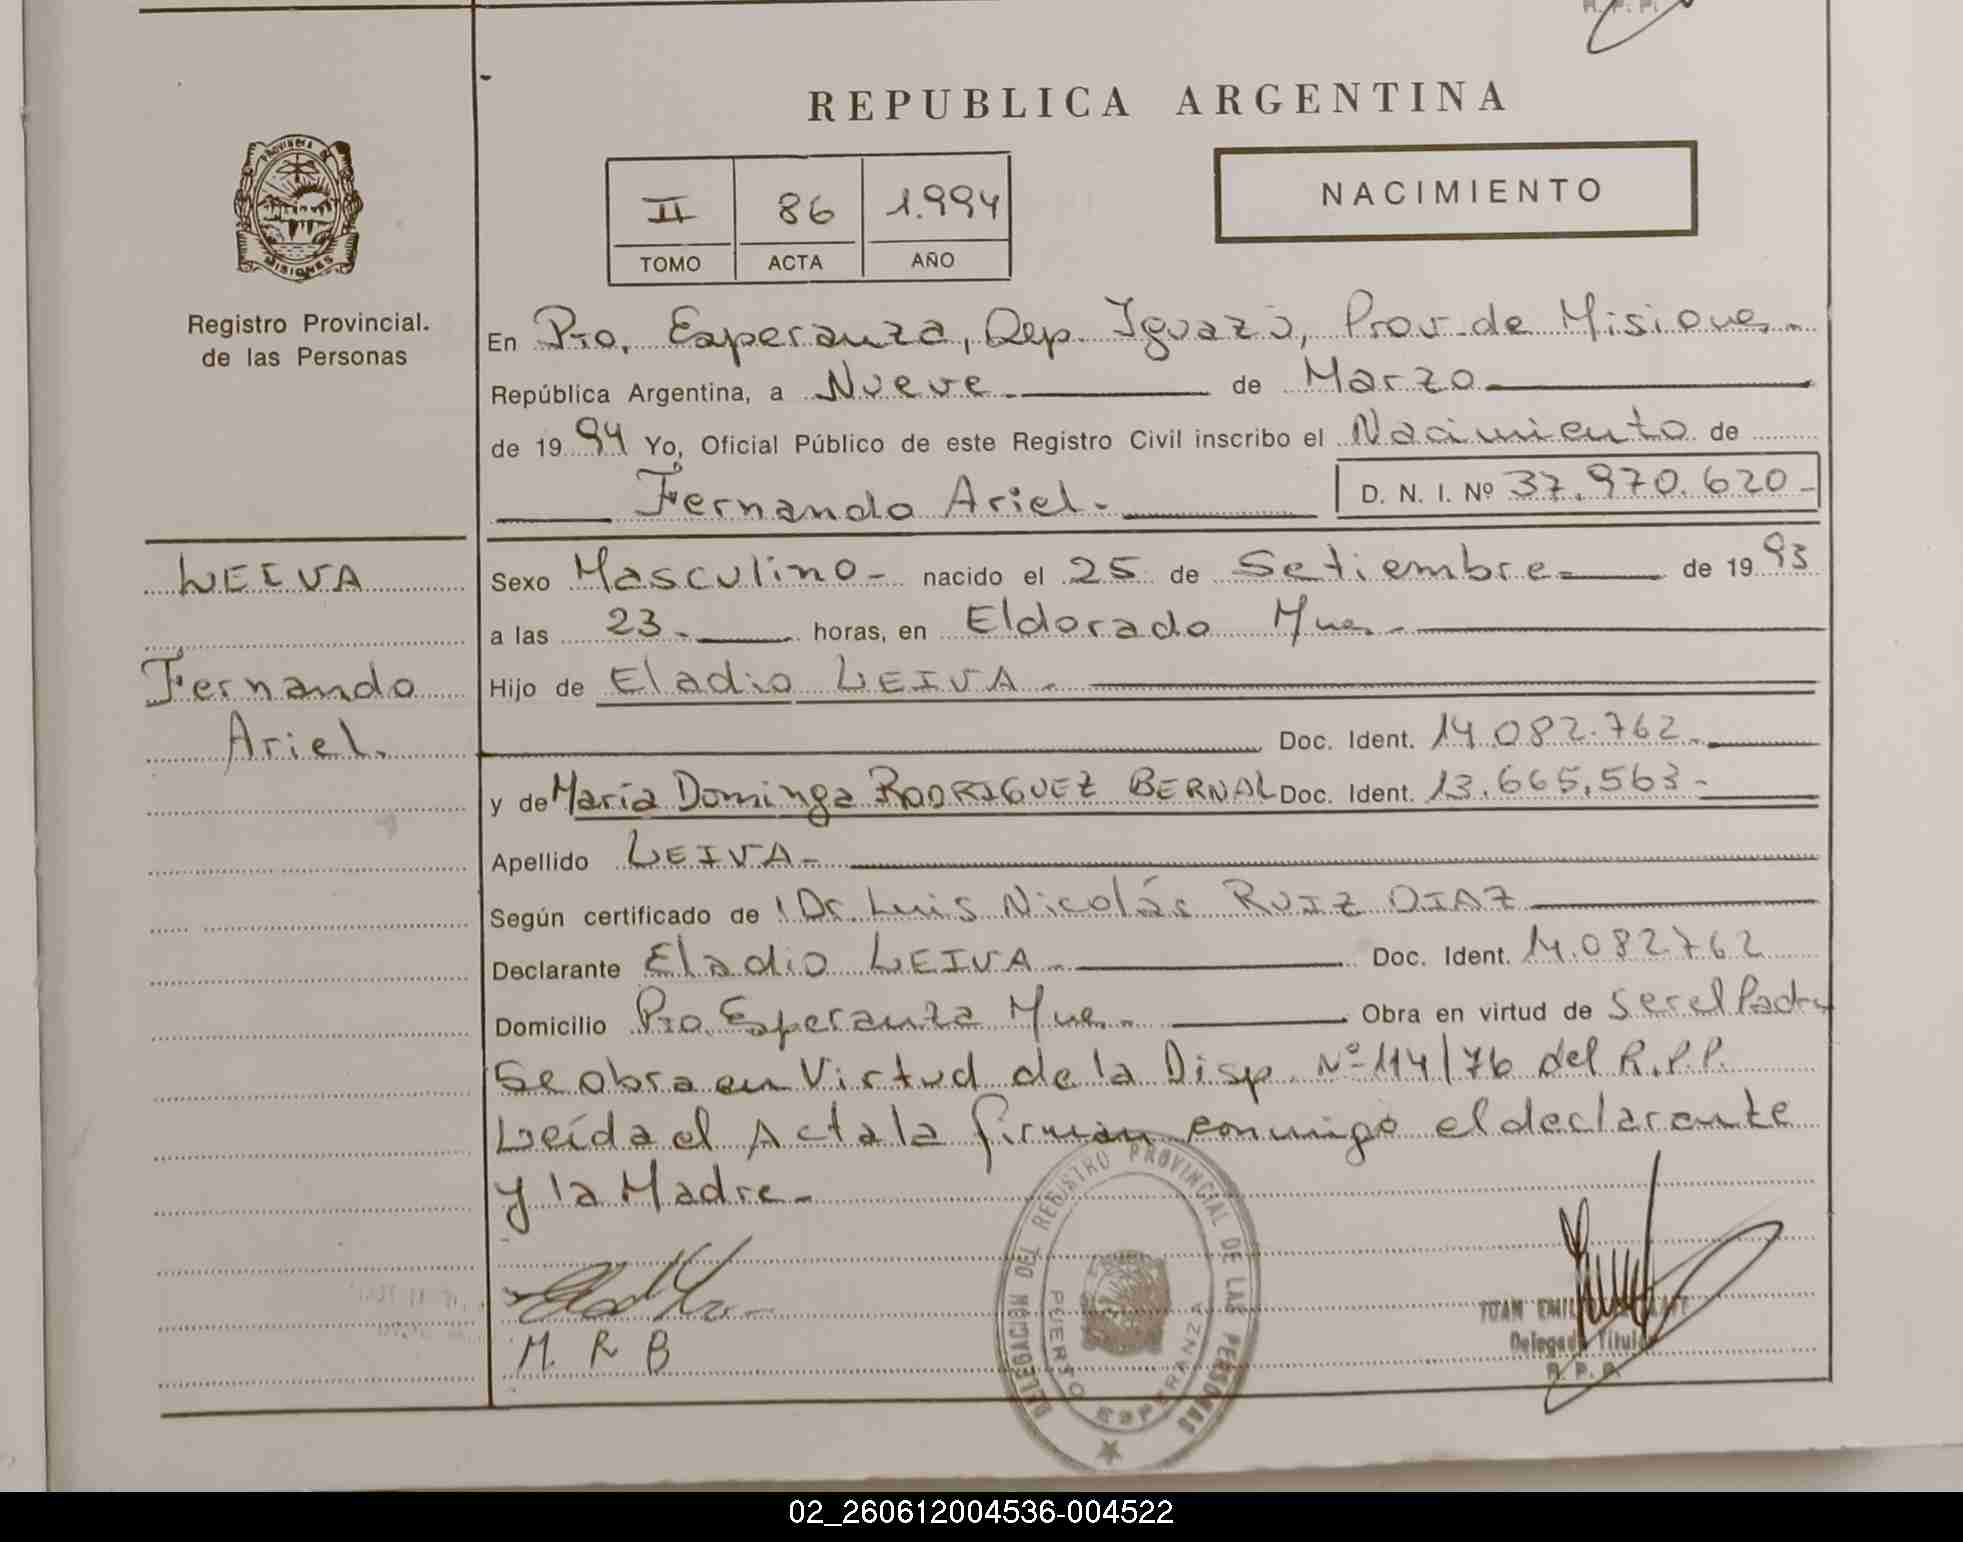 R. P. P.
REPUBLICA ARGENTINA
PROVINCIA DE
MISIONES
Registro Provincial.
de las Personas
II 86 1.994
TOMO ACTA AÑO
NACIMIENTO
En Pto. Esperanza, Dep. Iguazú, Prov. de Misiones.
República Argentina, a Nueve de Marzo
de 19 94 Yo, Oficial Público de este Registro Civil inscribo el Nacimiento de
Fernando Ariel. D. N. I. Nº 37.970.620-
LEIVA
Fernando
Ariel.
Sexo Masculino- nacido el 25 de Setiembre de 19 93
a las 23. horas, en Eldorado Mnes.
Hijo de Eladio LEIVA.
Doc. Ident. 14.082.762.
y de María Dominga RODRIGUEZ BERNAL Doc. Ident. 13.665.563-
Apellido LEIVA-
Según certificado de Dr. Luis Nicolás RUIZ DIAZ
Declarante Eladio LEIVA. Doc. Ident. 14.082.762
Domicilio Pto. Esperanza Mnes. Obra en virtud de ser el Padre
Se obra en Virtud de la Disp. Nº 114/76 del R.P.P.
Leída el Acta la firman conmigo el declarante
y la Madre-
M R B
DELEGACION DEL REGISTRO PROVINCIAL DE LAS PERSONAS
PUERTO ESPERANZA
JUAN
Delegado Titular
R. P. P.
02_260612004536-004522